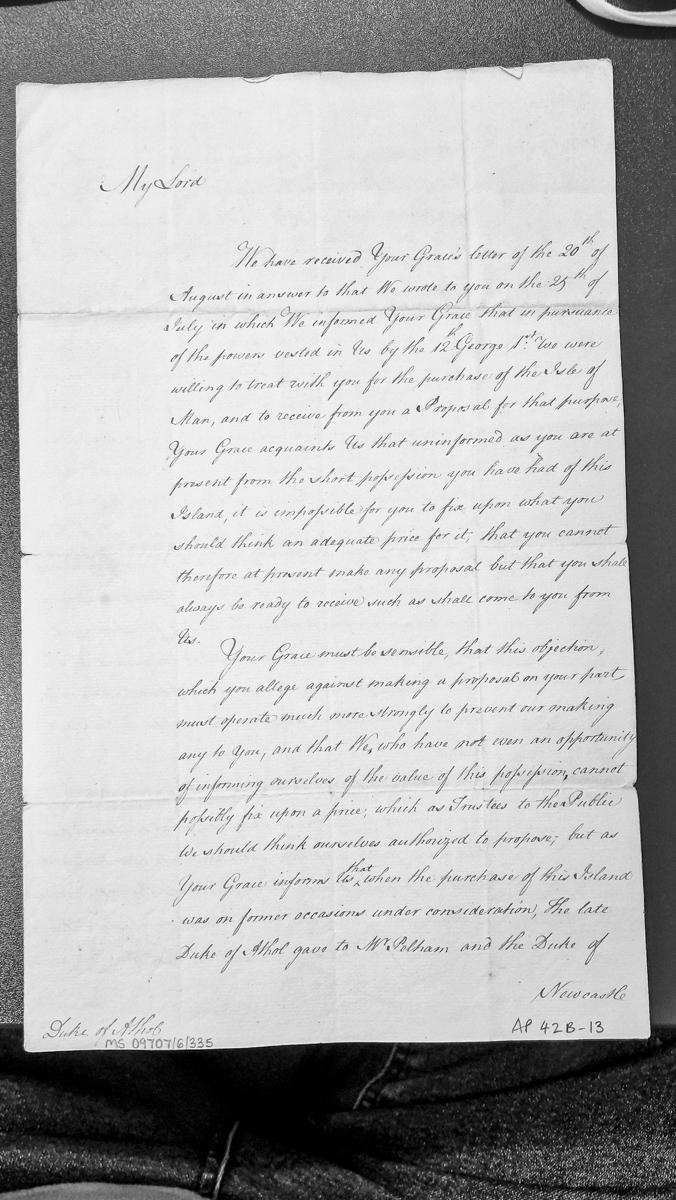 My Lord
We have received Your Grace's letter of the 20th of
August in answer to that We wrote to you on the 25th of
July in which We informed Your Grace that in pursuance
of the powers vested in Us by the 12th George 1st. We were
willing to treat with you for the purchase of the Isle of
Man, and to receive from you a Proposal for that purpose,
Your Grace acquaints Us that uninformed as you are at
present from the short possession you have had of this
Island, it is impossible for you to fix upon what you
should think an adequate price for it; that you cannot
therefore at present make any proposal but that you shall
always be ready to receive such as shall come to you from
Us.
Your Grace must be sensible, that this objection,
which you allege against making a proposal on your part
must operate much more strongly to prevent our making
any to You, and that We, who have not even an opportunity
of informing ourselves of the value of this possession, cannot
possibly fix upon a price, which as Trustees to the Public
We should think ourselves authorized to propose; but as
Your Grace informs Us that when the purchase of this Island
was on former occasions under consideration, The late
Duke of Athol gave to Mr Pelham and the Duke of
Newcastle
Duke of Athol
MS 09707/6/335
AP 42B-13